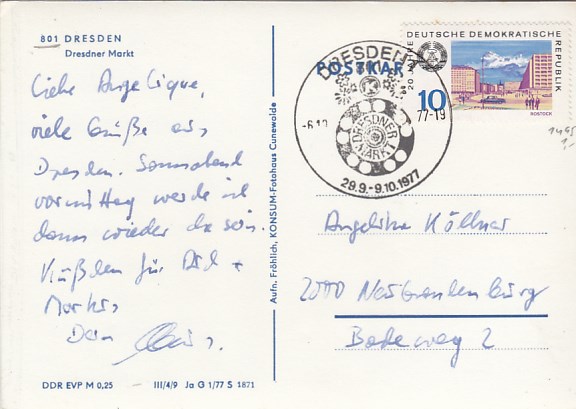 801 DRESDEN
Dresdner Markt
Liebe Angelique,
viele Grüße aus
Dresden. Sonnabend
vormittag werde ich
dann wieder da sein.
Küßchen für Dich +
Markus
Dein
DDR EVP M 0,25 III/4/9 Ja G 1/77 S 1871
Aufn. Fröhlich, KONSUM-Fotohaus Cunewalde
POSTKAR
DRESDEN
DRESDNER
MARKT
29.9.-9.10.1977
77-19
20 JAHRE DEUTSCHE DEMOKRATISCHE
REPUBLIK
10
ROSTOCK
1495
Angelika Köllner
2000 Neubrandenburg
Bodeweg 2